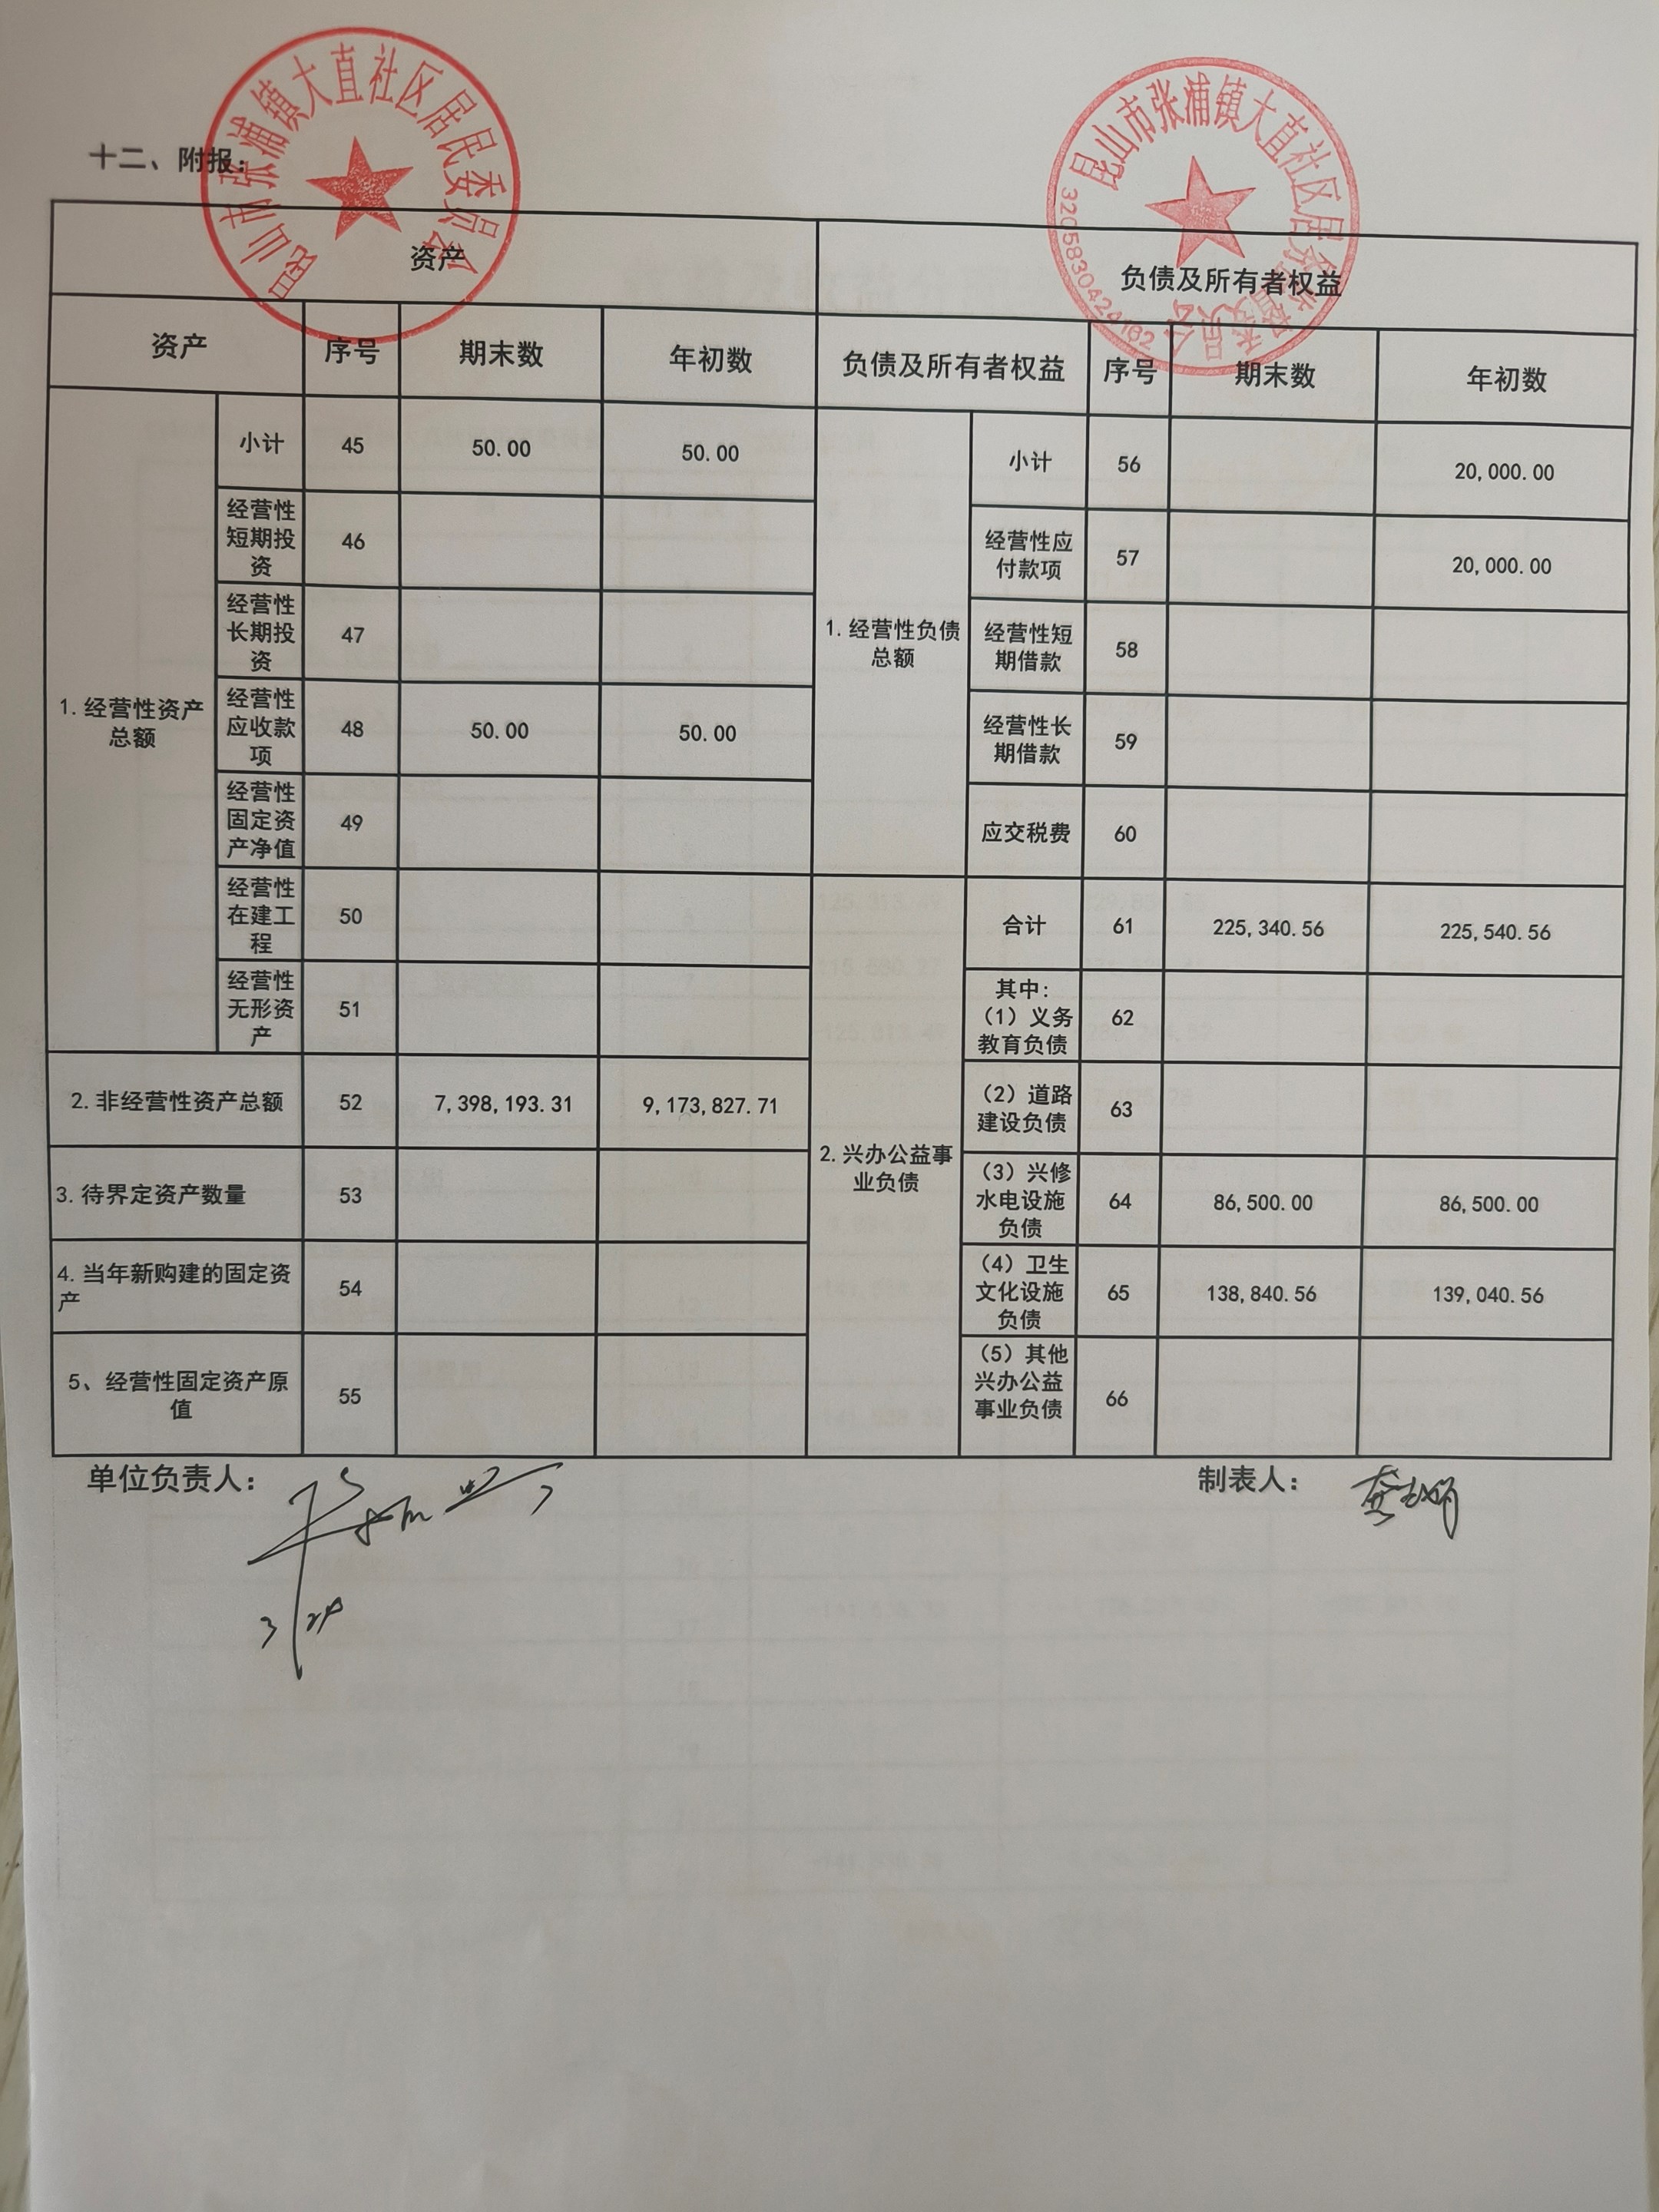 昆山市张浦镇大直社区居民委员会
昆山市张浦镇大直社区居务监督委员会
3205830424162
十二、附报:
资产 负债及所有者权益
资产 序号 期末数 年初数 负债及所有者权益 序号 期末数 年初数
1.经营性资产总额
小计 45 50.00 50.00
经营性短期投资 46
经营性长期投资 47
经营性应收款项 48 50.00 50.00
经营性固定资产净值 49
经营性在建工程 50
经营性无形资产 51
2.非经营性资产总额 52 7,398,193.31 9,173,827.71
3.待界定资产数量 53
4.当年新购建的固定资产 54
5、经营性固定资产原值 55
1.经营性负债总额
小计 56 20,000.00
经营性应付款项 57 20,000.00
经营性短期借款 58
经营性长期借款 59
应交税费 60
2.兴办公益事业负债
合计 61 225,340.56 225,540.56
其中:(1)义务教育负债 62
(2)道路建设负债 63
(3)兴修水电设施负债 64 86,500.00 86,500.00
(4)卫生文化设施负债 65 138,840.56 139,040.56
(5)其他兴办公益事业负债 66
单位负责人: 制表人: